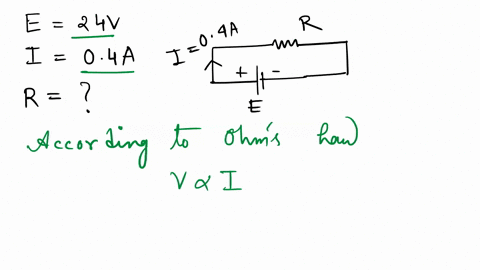 E = 24V
I = 0.4A
R = ?
I = 0.4A
R
+ -
E
According to ohm's law
V ∝ I